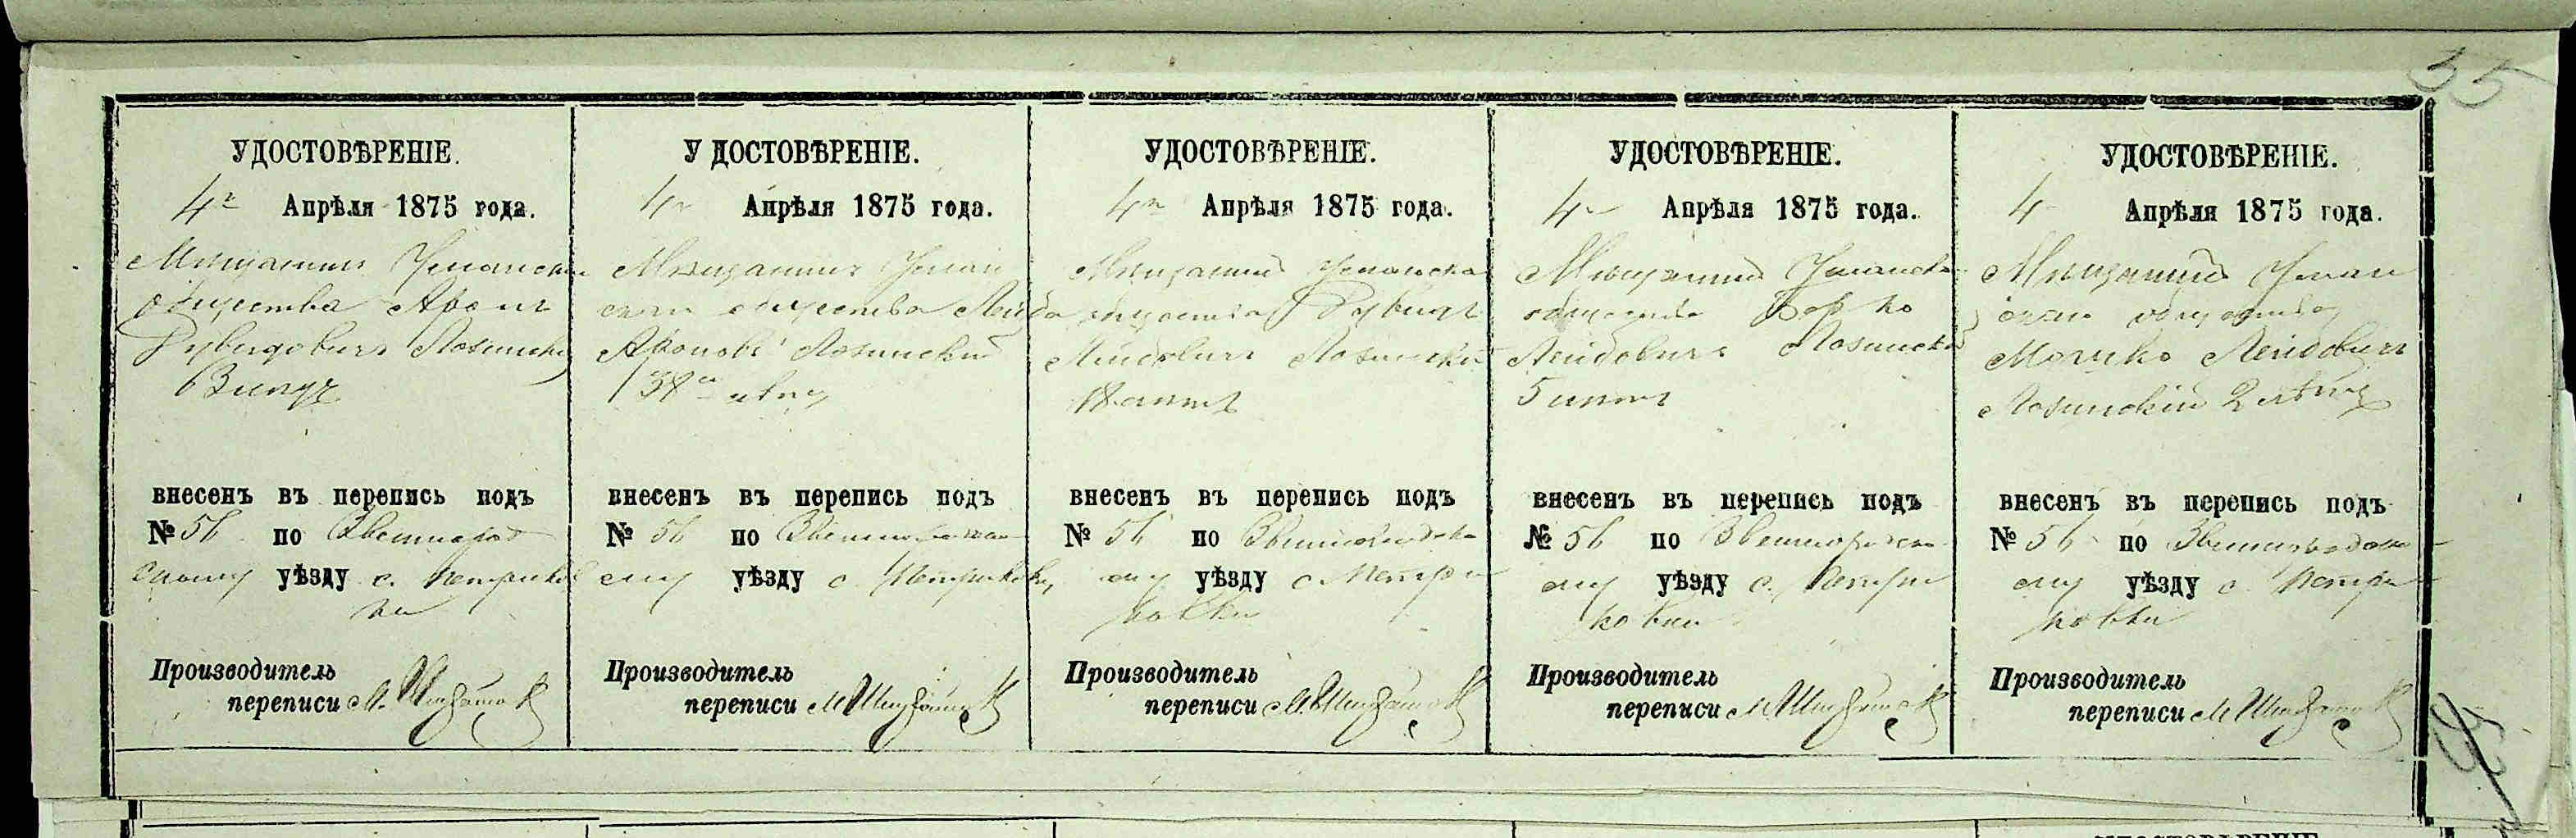 35
УДОСТОВѢРЕНІЕ.
4 Апрѣля 1875 года.
Мѣщанинъ Уманскаго
общества Аронъ
Рувиновичъ Лозинскій
внесенъ въ перепись подъ
№ 56 по Звенигород
скому уѣзду с. Петриков
ки
Производитель
переписи М.
У ДОСТОВѢРЕНІЕ.
4 Апрѣля 1875 года.
Мѣщанинъ Уман
скаго общества Лейба
Ароновъ Лозинскій
38 лѣтъ
внесенъ въ перепись подъ
№ 56 по Звенигородско
му уѣзду с. Петриковки
Производитель
переписи М.
УДОСТОВѢРЕНІЕ.
4 Апрѣля 1875 года.
Мѣщанинъ Уманскаго
общества
Лейбовичъ Лозинскій
лѣтъ
внесенъ въ перепись подъ
№ 56 по Звенигородско
му уѣзду с. Петри
ковки
Производитель
переписи М.
УДОСТОВѢРЕНІЕ.
4 Апрѣля 1875 года.
Мѣщанинъ Уманскаго
общества Борко
Лейбовичъ Лозинскій
5 лѣтъ
внесенъ въ перепись подъ
№ 56 по Звенигородско
му уѣзду с. Петри
ковки
Производитель
переписи М.
УДОСТОВѢРЕНІЕ.
4 Апрѣля 1875 года.
Мѣщанинъ Уман
скаго общества
Мошко Лейбовичъ
Лозинскій 2 лѣтъ
внесенъ въ перепись подъ
№ 56 по Звенигородско
му уѣзду с. Петри
ковки
Производитель
переписи М.